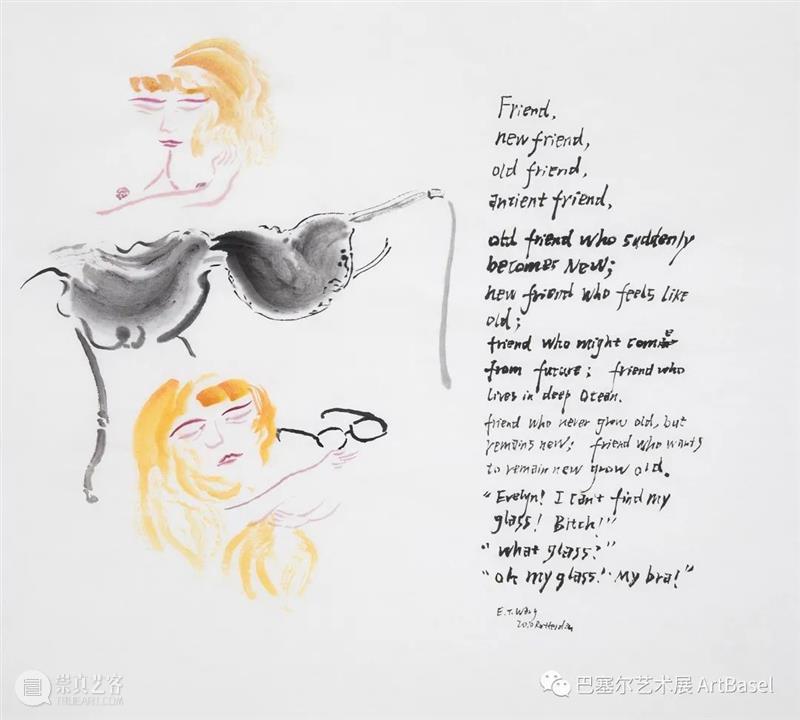 Friend,
new friend,
old friend,
antient friend,
old friend who suddenly
becomes New;
new friend who feels like
old;
friend who might come
from future; friend who
lives in deep Ocean.
friend who never grow old, but
remains new; friend who wants
to remain new grow old.
"Evelyn! I can't find my
glass! Bitch!"
"what glass?"
"oh my glass! My bra!"
E.T. Wang
Rotterdam
崇真艺客
TRUEART.COM
巴塞尔艺术展 ArtBasel